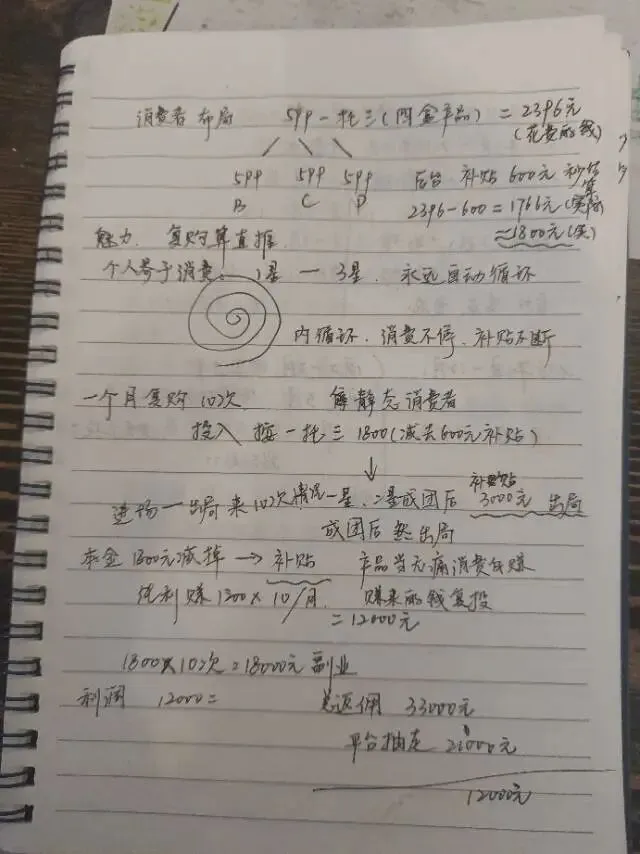 消费者布局 599一托三(四盒产品) = 2396元
(花费的钱)
599 599 599 后台 补贴 600元 秒结算
B C D 2396-600=1766元(实际)
≈1800元(实)
魅力. 复购算直推.
个人等于消费. 1星 — 3星. 永远自动循环
内循环. 消费不停. 补贴不断
一个月复购10次 静态消费者
投入 按一托三 1800(减去600元补贴)
↓
进场一出局来10次 一星. 二星成团后 补贴 3000元 出局
成团后 出局
本金1800元减掉 → 补贴 产品当无痛消费
纯利赚1200×10/月. 赚来的钱复投
=12000元
1800×10次=18000元 副业
利润 12000= 总返佣 33000元
平台抽走 21000元
12000元